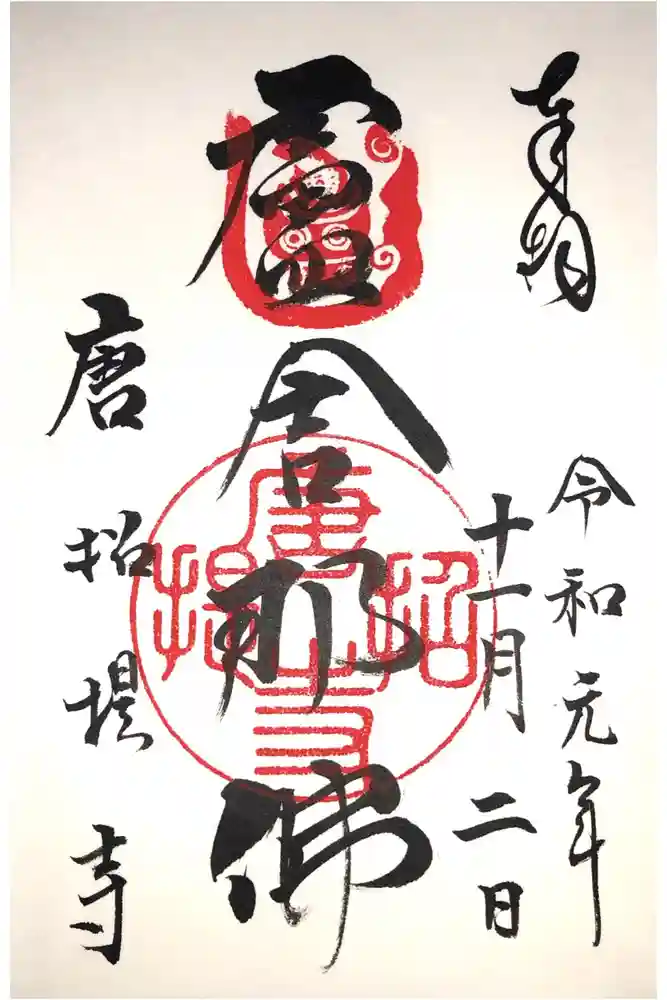 奉拝
令和元年
十一月二日
盧舎那佛
唐招提寺
唐招提寺